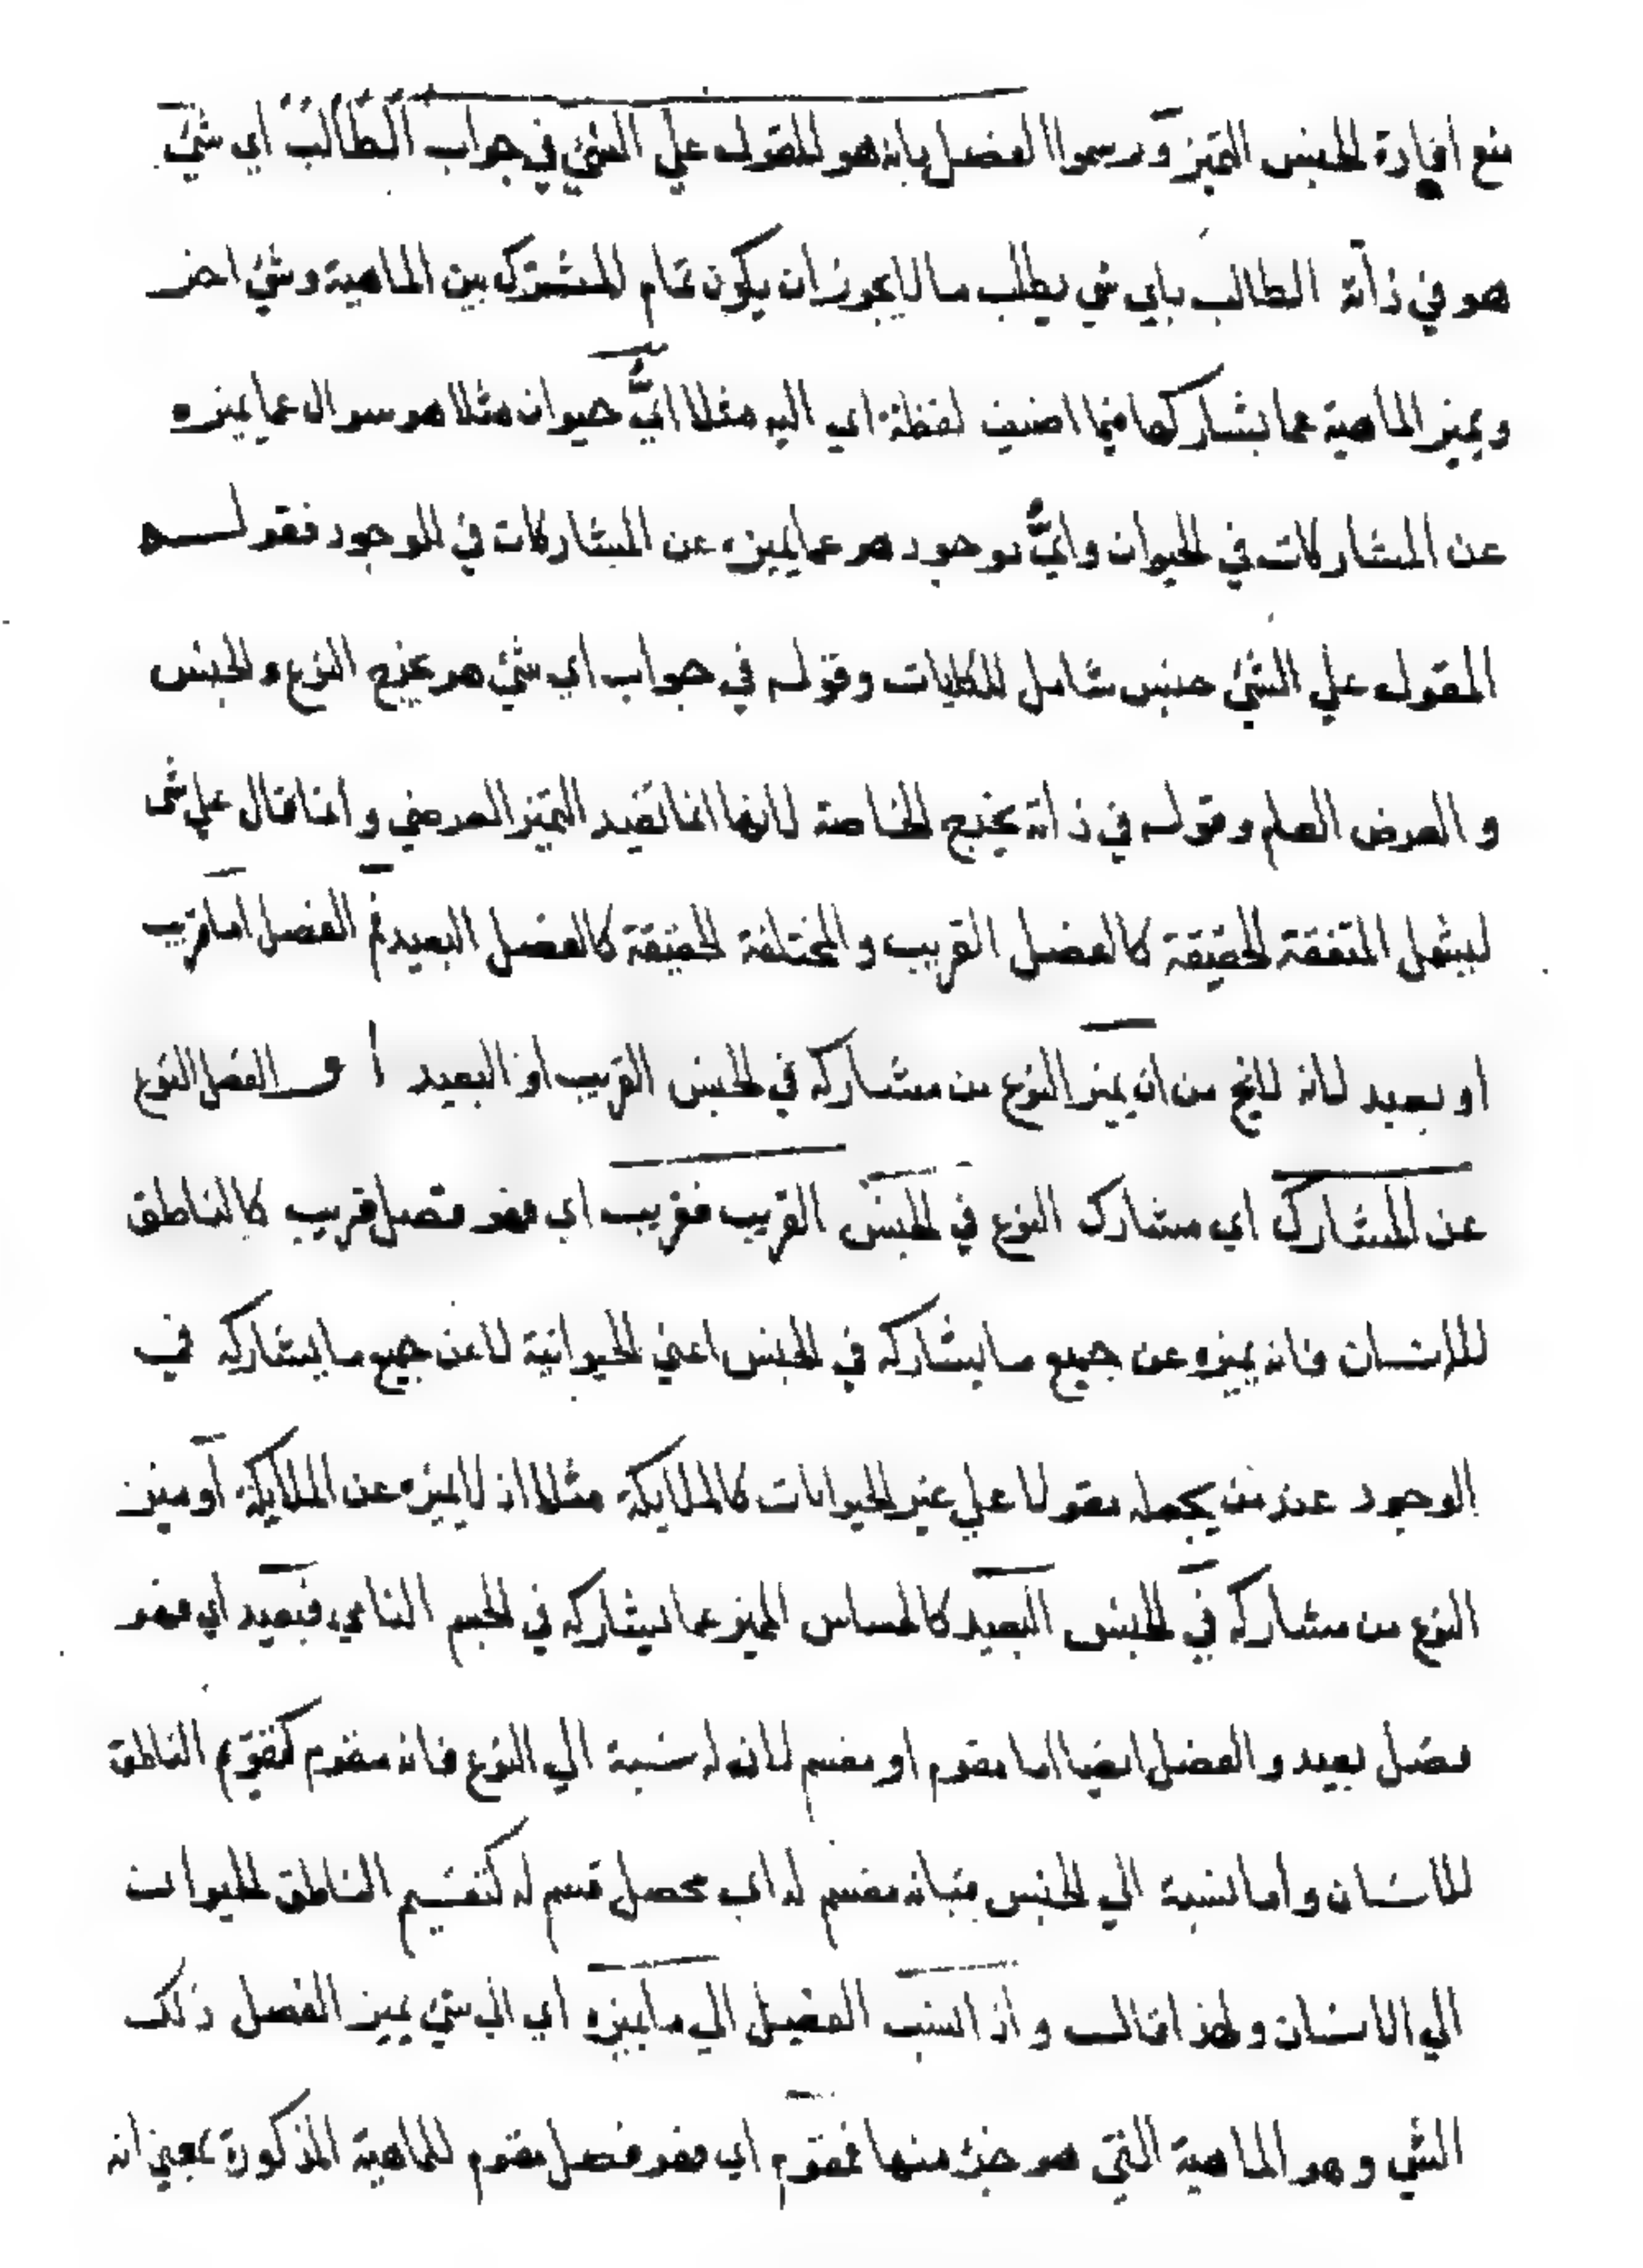 منع افادة الجنس التميز ورسموا الفصل بانه هو المقول علي الشئ في جواب الطالب اي شئ
هو في ذاته الطالب باي شي يطلب ما لا يجوز ان يكون تمام المشترك بين الماهية وشئ اخر
ويميز الماهية عما يشاركها فيما اضيف لفظة اي اليه مثلا ايّ حيوان مثلا هو سوال عما يميزه
عن المشاركات في الحيوان وايّ موجود هو عما يميزه عن المشاركات في الموجود فقوله
المقول علي الشئ جنس شامل للكليات وقوله في جواب اي شئ هو يخرج النوع والجنس
والعرض العام وقوله في ذاته يخرج الخاصة لانها انما تفيد التميز العرضي وانما قال علي شى
ليشمل المتفقة الحقيقة كالفصل القريب والمختلفة الحقيقة كالفصل البعيد ثم الفصل اما قريب
او بعيد لانه لا يخ من ان يميز النوع من مشاركه في الجنس القريب او البعيد ا و الفصل النوع
عن المشارك اي مشارك النوع في الجنس القريب فقريب اي فهو فصل قريب كالناطق
للانسان فانه يميزه عن جميع ما يشاركه في الجنس اعني الحيوانية لا عن جميع ما يشاركه في
الوجود عند من يجعله مقولا علي غير الحيوانات كالملايكة مثلا اذ لا يميزه عن الملايكة او ميز
النوع من مشاركه في الجنس البعيد كالحساس المميز عما يشاركه في الجسم النامي فبعيد اي فهو
فصل بعيد والفصل ايضا اما مقوم او مقسم لان له نسبة الي النوع فانه مقوم كتقوّم الناطق
للانسان واما نسبة الي الجنس فبانه مقسم له اي محصل قسم له كتقسيم الناطق الحيوان
الي الانسان ولهذا قال واذا نسب الفصل الي ما يميزه اي الي شئ يميز الفصل ذلك
الشي وهو الماهية التي هو جزء منها فمقوم اي فهو فصل مقوم للماهية المذكورة بمعني انه